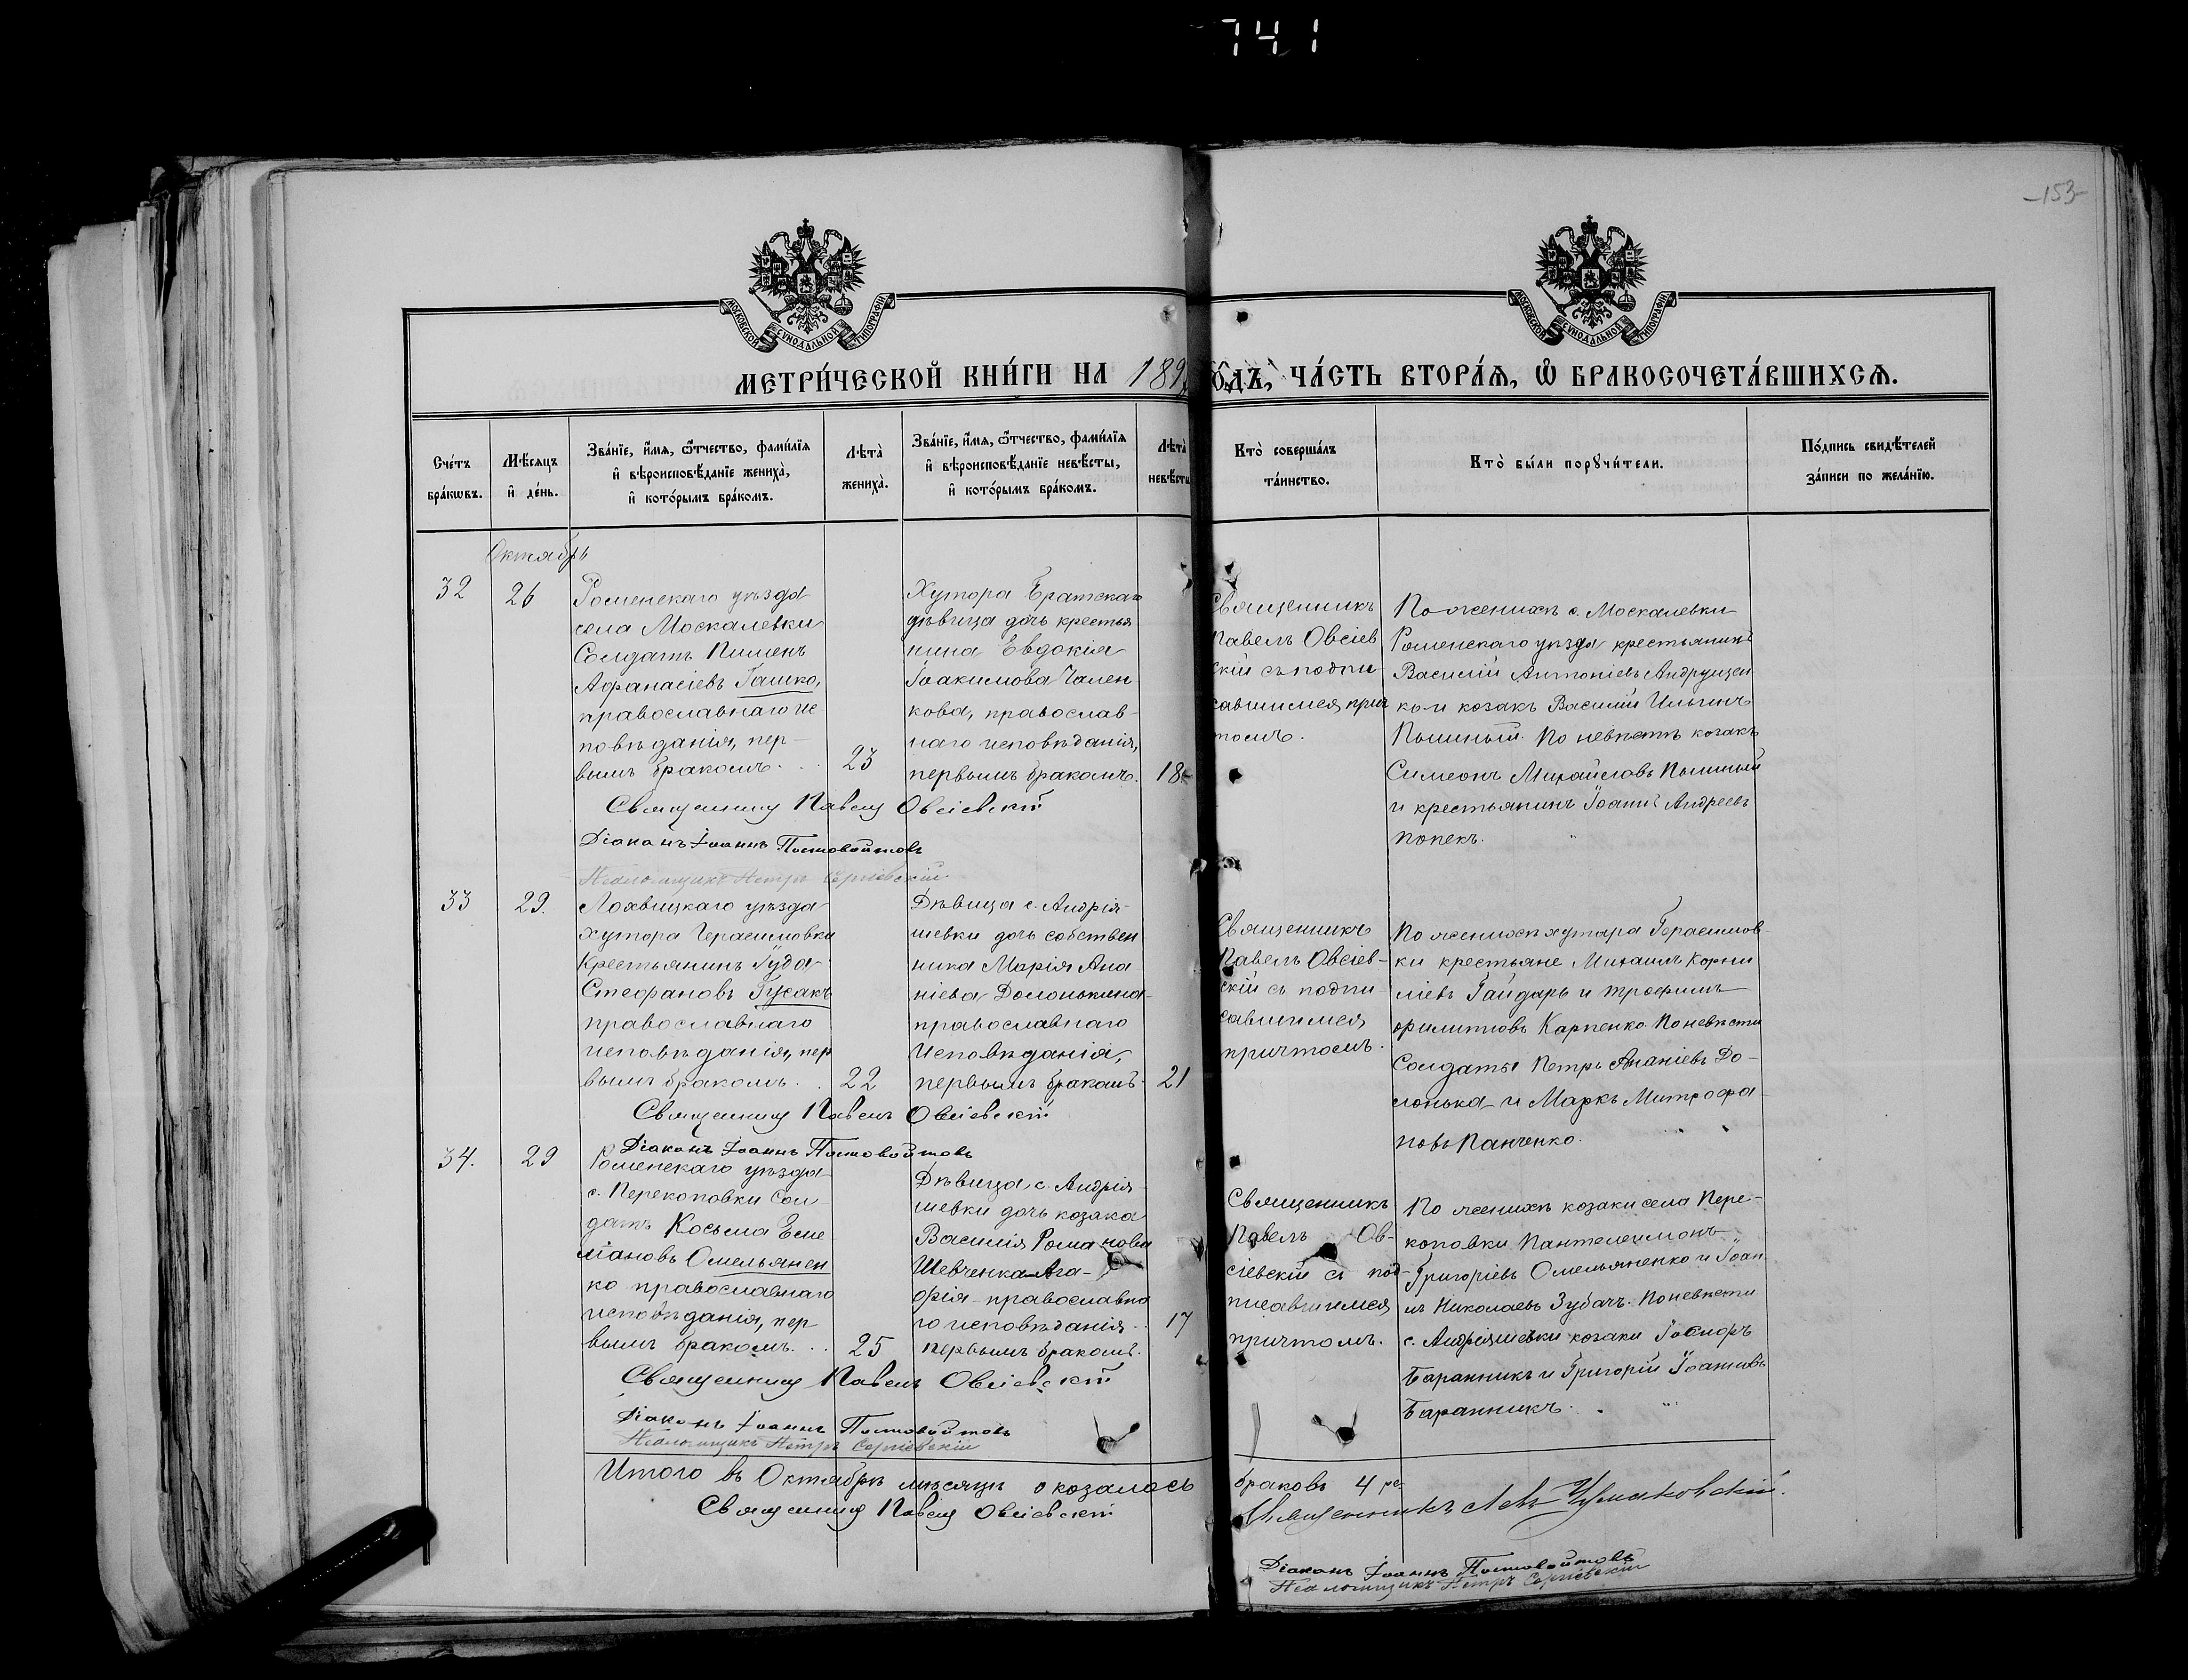 741
-153-
МОСКОВСКОЙ СѴНОДАЛЬНОЙ ТИПОГРАФІИ
МОСКОВСКОЙ СѴНОДАЛЬНОЙ ТИПОГРАФІИ
МЕТРИ́ЧЕСКОЙ КНИ́ГИ НА 189
О́ДЪ, ЧА́СТЬ ВТОРА́Ѧ, Ѡ БРАКОСОЧЕТА́ВШИХСѦ.
Сче́тъ бра́кѡвъ.
Мѣ́сяцъ и҆ де́нь.
Зва́нїе, и҆́мя, ѻ҆́тчество, фами́лїя
и҆ вѣроисповѣ́данїе жениха̀,
и҆ кото́рымъ бра́комъ.
Лѣта̀ жениха̀.
Зва́нїе, и҆́мя, ѻ҆́тчество, фами́лїя
и҆ вѣроисповѣ́данїе невѣ́сты,
и҆ кото́рымъ бра́комъ.
Лѣта̀ невѣсты
Кто̀ соверша́лъ та́инство.
Кто̀ бы́ли порꙋчи́тели.
По́дпись свидѣ́телей
за́писи по жела́нїю.
Октябрь
32
26
Роменскаго уѣзда
села Москалевки
Солдатъ Пименъ
Афанасіевъ Гашко,
православнаго ис
повѣданія, пер-
вымъ бракомъ. . .
23
Хутора Братскаго
дѣвица дочь крестья
нина Евдокія
Іоакимова Чален
кова, православ-
наго исповѣданія,
первымъ бракомъ.
18
Священникъ
Павелъ Овсіев
скій съ подпи
савшимся прич
томъ.
По женихѣ с. Москалевки
Роменскаго уѣзда крестьянинъ
Василій Антоніевъ Андрущен
ко и козакъ Василій Ильинъ
Пышный. По невѣстѣ козакъ
Симеонъ Михайловъ Пышный
и крестьянинъ Іоаннъ Андреевъ
Попекъ.
Священникъ Павелъ Овсіевскій
Діаконъ Іоаннъ Постовойтовъ
Псаломщикъ Петръ Сергіевскій
33
29.
Лохвицкаго уѣзда
хутора Герасимовки
Крестьянинъ Іуда
Стефановъ Гусакъ
православнаго
исповѣданія, пер
вымъ бракомъ. .
22
Дѣвица с. Андрія-
шевки дочь собствен
ника Марія Ана
ніева Долонькина-
православнаго
Исповѣданія,
первымъ бракомъ.
21
Священникъ
Павелъ Овсіев-
скій съ подпи
савшимся
причтомъ.
По женихѣ хутора Герасимов-
ки крестьяне Михаилъ Корни
ліевъ Гайдаръ и Трофимъ
Филиповъ Карпенко. По невѣсти
Солдаты Петръ Ананіевъ До-
лонька и Маркъ Митрофа
новъ Панченко.
Священникъ Павелъ Овсіевскій
Діаконъ Іоаннъ Постовойтовъ
34.
29
Роменскаго уѣзда
с. Перекоповки Сол
датъ Косьма Еме
ліановъ Омельянен
ко православнаго
исповѣданія, пер
вымъ бракомъ. . .
25
Дѣвица с. Андрія
шевки дочь козака
Василія Романова
Шевченка Ага-
фія православна
го исповѣданія . .
первымъ бракомъ.
17
Священникъ
Павелъ Ов-
сіевскій съ под-
писавшимся
причтомъ.
По женихѣ козаки села Пере-
коповки Пантелеимонъ
Григоріевъ Омельяненко и Іоан
нъ Николаевъ Зубачъ. По невѣсти
с. Андріяшевки козаки Іосифъ
Баранникъ и Григорій Іоанновъ
Баранникъ.
Священникъ Павелъ Овсіевскій
Діаконъ Іоаннъ Постовойтовъ
Псаломщикъ Петръ Сергіевскій
Итого въ Октябрѣ мѣсяцѣ оказалось браковъ 4
Священникъ Павелъ Овсіевскій
Священникъ Левъ Чумаковскій.
Діаконъ Іоаннъ Постовойтовъ
Псаломщикъ Петръ Сергіевскій